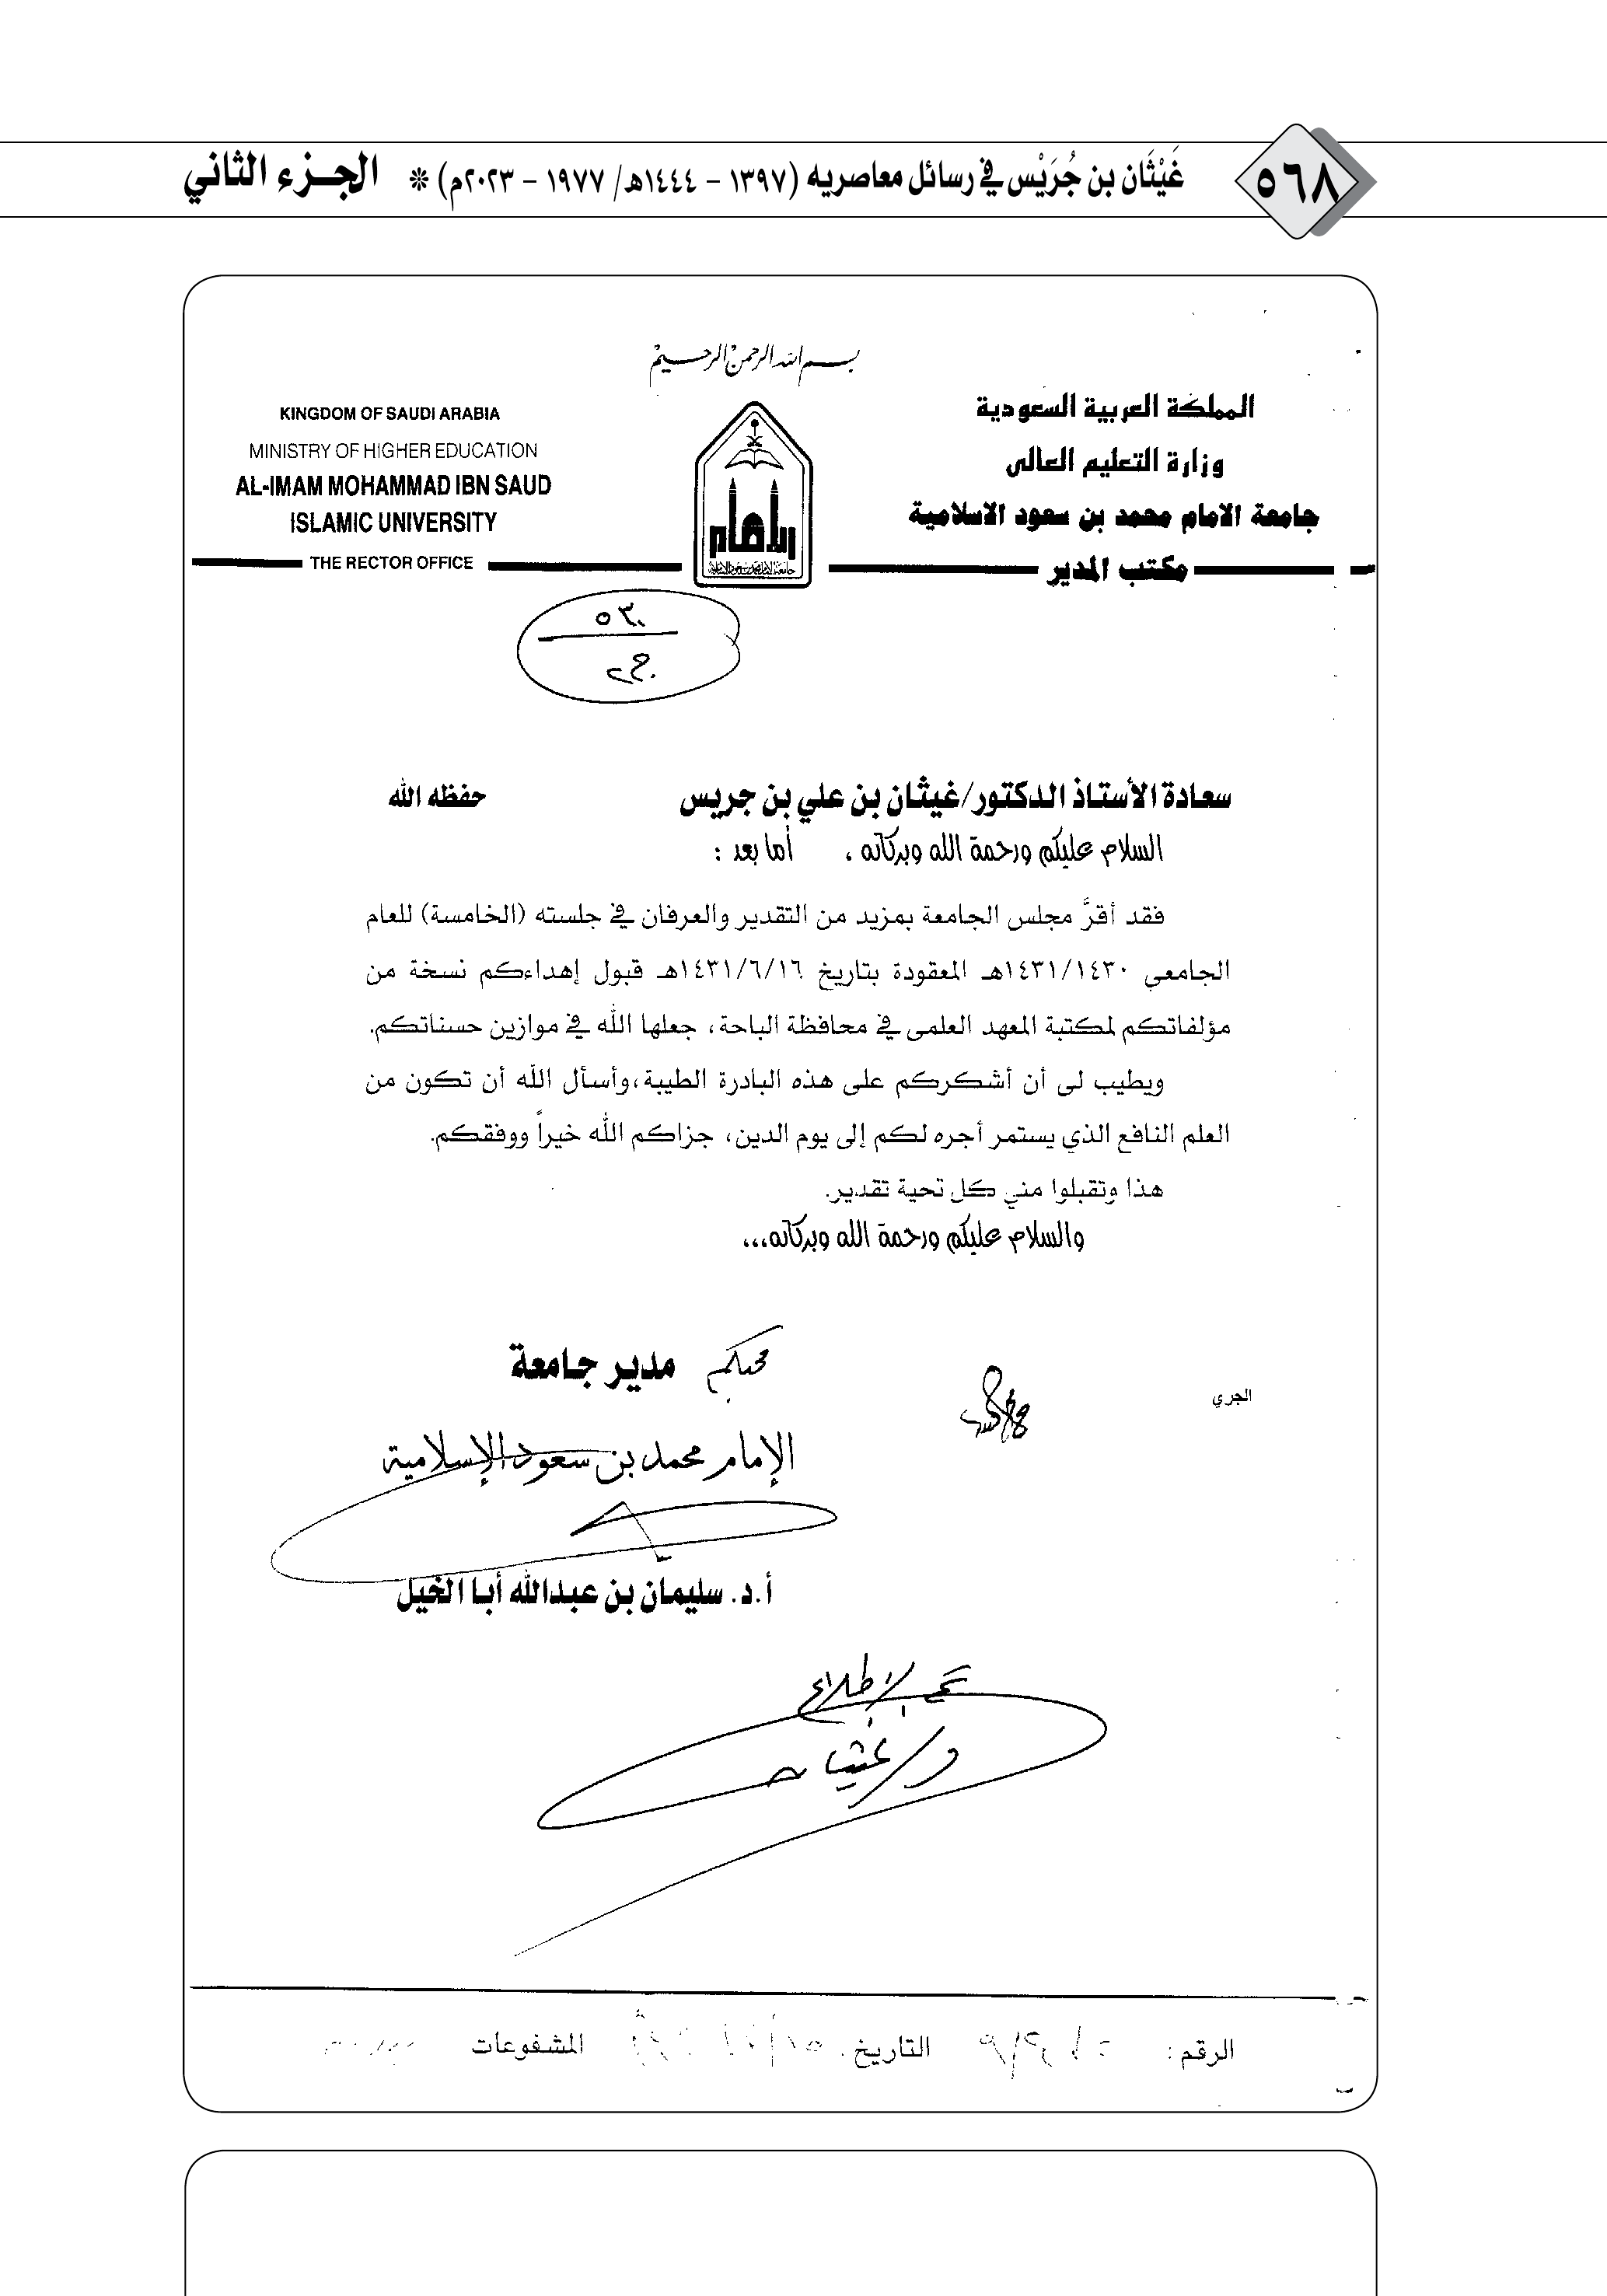 ٥٦٨
غَيْثَان بن جُرَيْس في رسائل معاصريه (١٣٩٧ - ١٤٤٤هـ/ ١٩٧٧ - ٢٠٢٣م) * الجزء الثاني
بسم الله الرحمن الرحيم
المملكة العربية السعودية
وزارة التعليم العالى
جامعة الامام محمد بن سعود الاسلامية
مكتب المدير
KINGDOM OF SAUDI ARABIA
MINISTRY OF HIGHER EDUCATION
AL-IMAM MOHAMMAD IBN SAUD
ISLAMIC UNIVERSITY
THE RECTOR OFFICE
سعادة الأستاذ الدكتور/غيثان بن علي بن جريس حفظه الله
السلام عليكم ورحمة الله وبركاته ، أما بعد :
فقد أقرَّ مجلس الجامعة بمزيد من التقدير والعرفان في جلسته (الخامسة) للعام
الجامعي ١٤٣١/١٤٣٠هـ المعقودة بتاريخ ١٤٣١/٦/١٦هـ قبول إهداءكم نسخة من
مؤلفاتكم لمكتبة المعهد العلمى في محافظة الباحة، جعلها الله في موازين حسناتكم.
ويطيب لى أن أشكركم على هذه البادرة الطيبة،وأسأل الله أن تكون من
العلم النافع الذي يستمر أجره لكم إلى يوم الدين، جزاكم الله خيراً ووفقكم.
هذا وتقبلوا مني كل تحية تقدير.
والسلام عليكم ورحمة الله وبركاته،،،
محبكم مدير جامعة
الجري
الإمام محمد بن سعود الإسلامية
أ.د. سليمان بن عبدالله أبا الخيل
تم الإطلاع
د/ غيثان
الرقم: التاريخ: المشفوعات